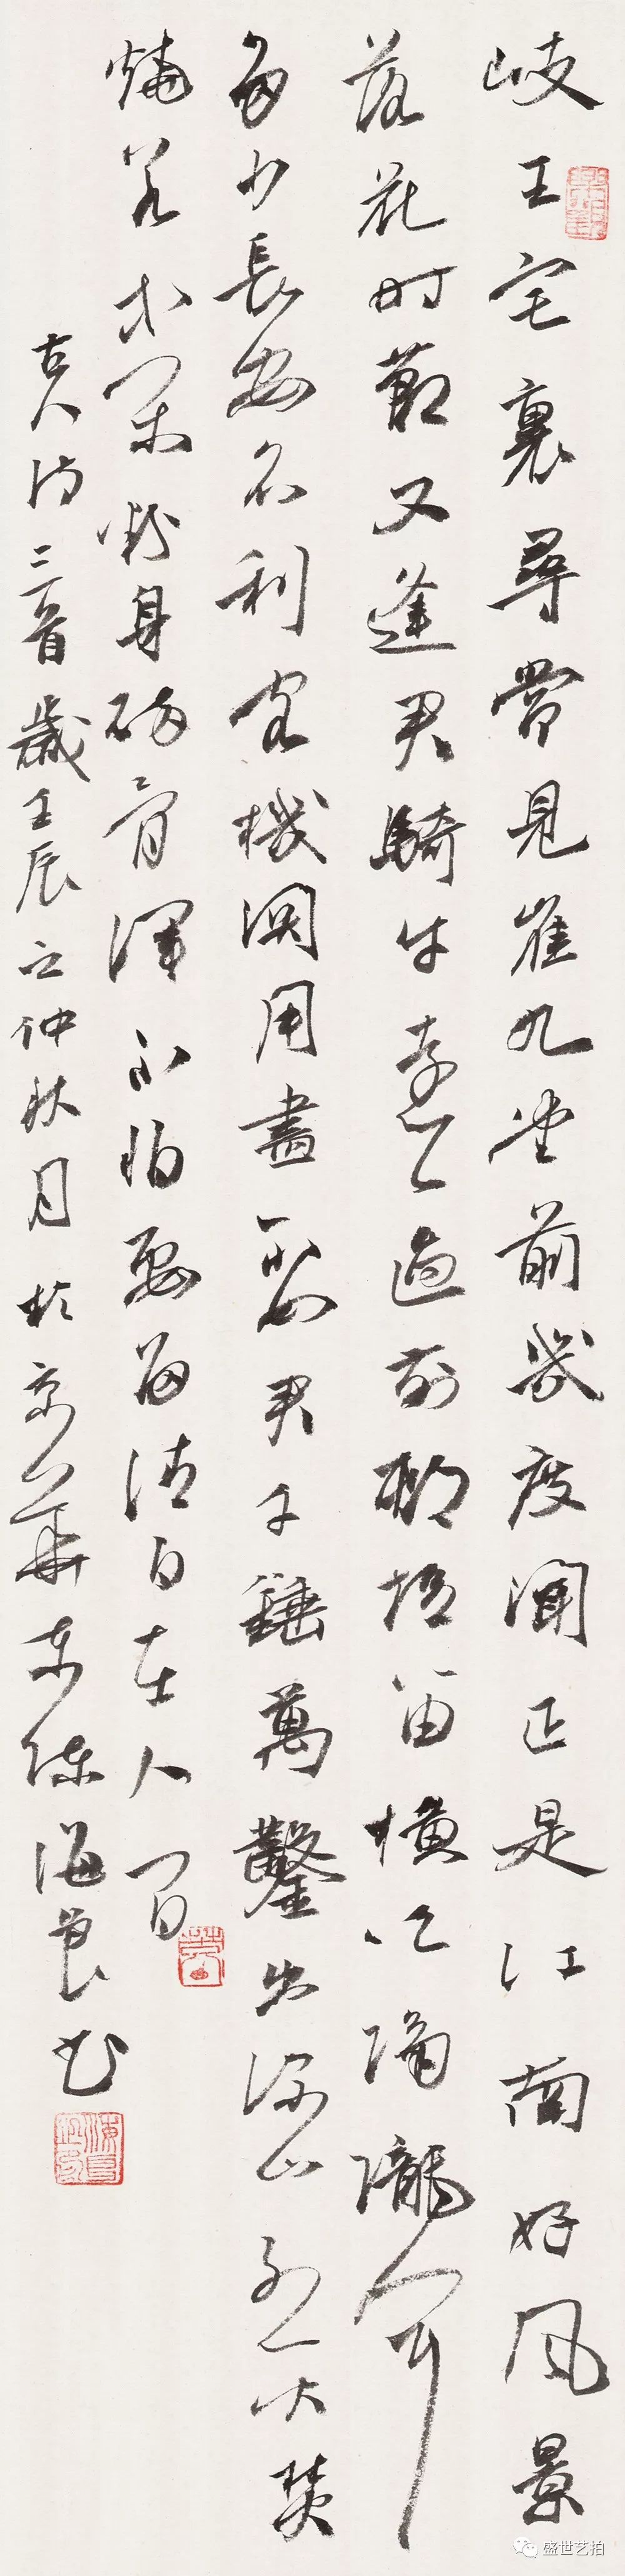 岐王宅裏尋常見崔九堂前幾度聞正是江南好风景
落花时節又逢君騎牛遠遠過前邨短笛橫吹隔隴聞
多少長安名利客機関用盡不如君千錘萬鑿出深山烈火焚
燒若等閒粉身碎骨渾不怕要留清白在人間
古人詩三首歲壬辰之仲秋月於京華东陳海良书
盛世艺拍